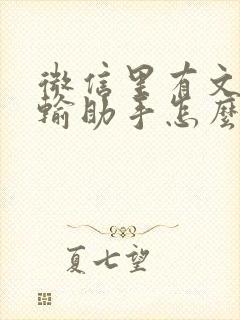 微信里有文
输助手怎麽
夏七望